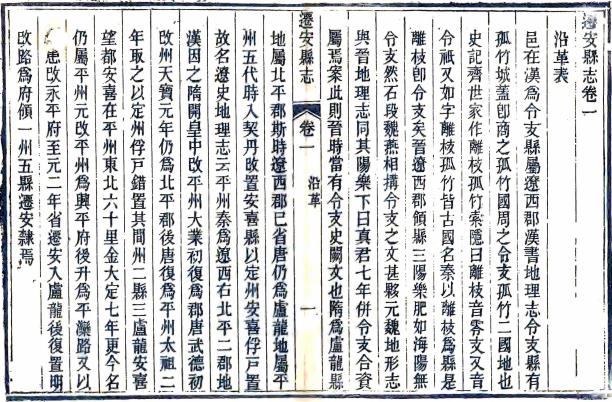 遷安縣志卷一
沿革表
邑在漢爲令支縣屬遼西郡漢書地理志令支縣有
孤竹城蓋卽商之孤竹國周之令支孤竹二國地也
史記齊世家作離枝孤竹索隱曰離枝音零支又音
令祇又如字離枝孤竹皆古國名秦以離枝爲縣是
離枝卽令支矣晉遼西郡領縣三陽樂肥如海陽無
令支然石段魏燕相搆令支之文甚夥元魏地形志
與晉地理志同其陽樂下曰真君七年併令支合資
屬焉案此則晉時當有令支史闕文也隋爲盧龍縣
遷安縣志 卷一 沿革 一
地屬北平郡斯時遼西郡已省唐仍爲盧龍地屬平
州五代時入契丹改置安喜縣以定州安喜俘戶置
故名遼史地理志云平州秦爲遼西右北平二郡地
漢因之隋開皇中改平州大業初復爲郡唐武德初
改州天寶元年仍爲北平郡後唐復爲平州太祖二
年取之以定州俘戶錯置其間州二縣三盧龍安喜
望都安喜在平州東北六十里金大定七年更今名
仍屬平州元改平州爲興平府後升爲平灤路又以
改永平府至元二年省遷安入盧龍後復置明
改路爲府領一州五縣遷安隸焉